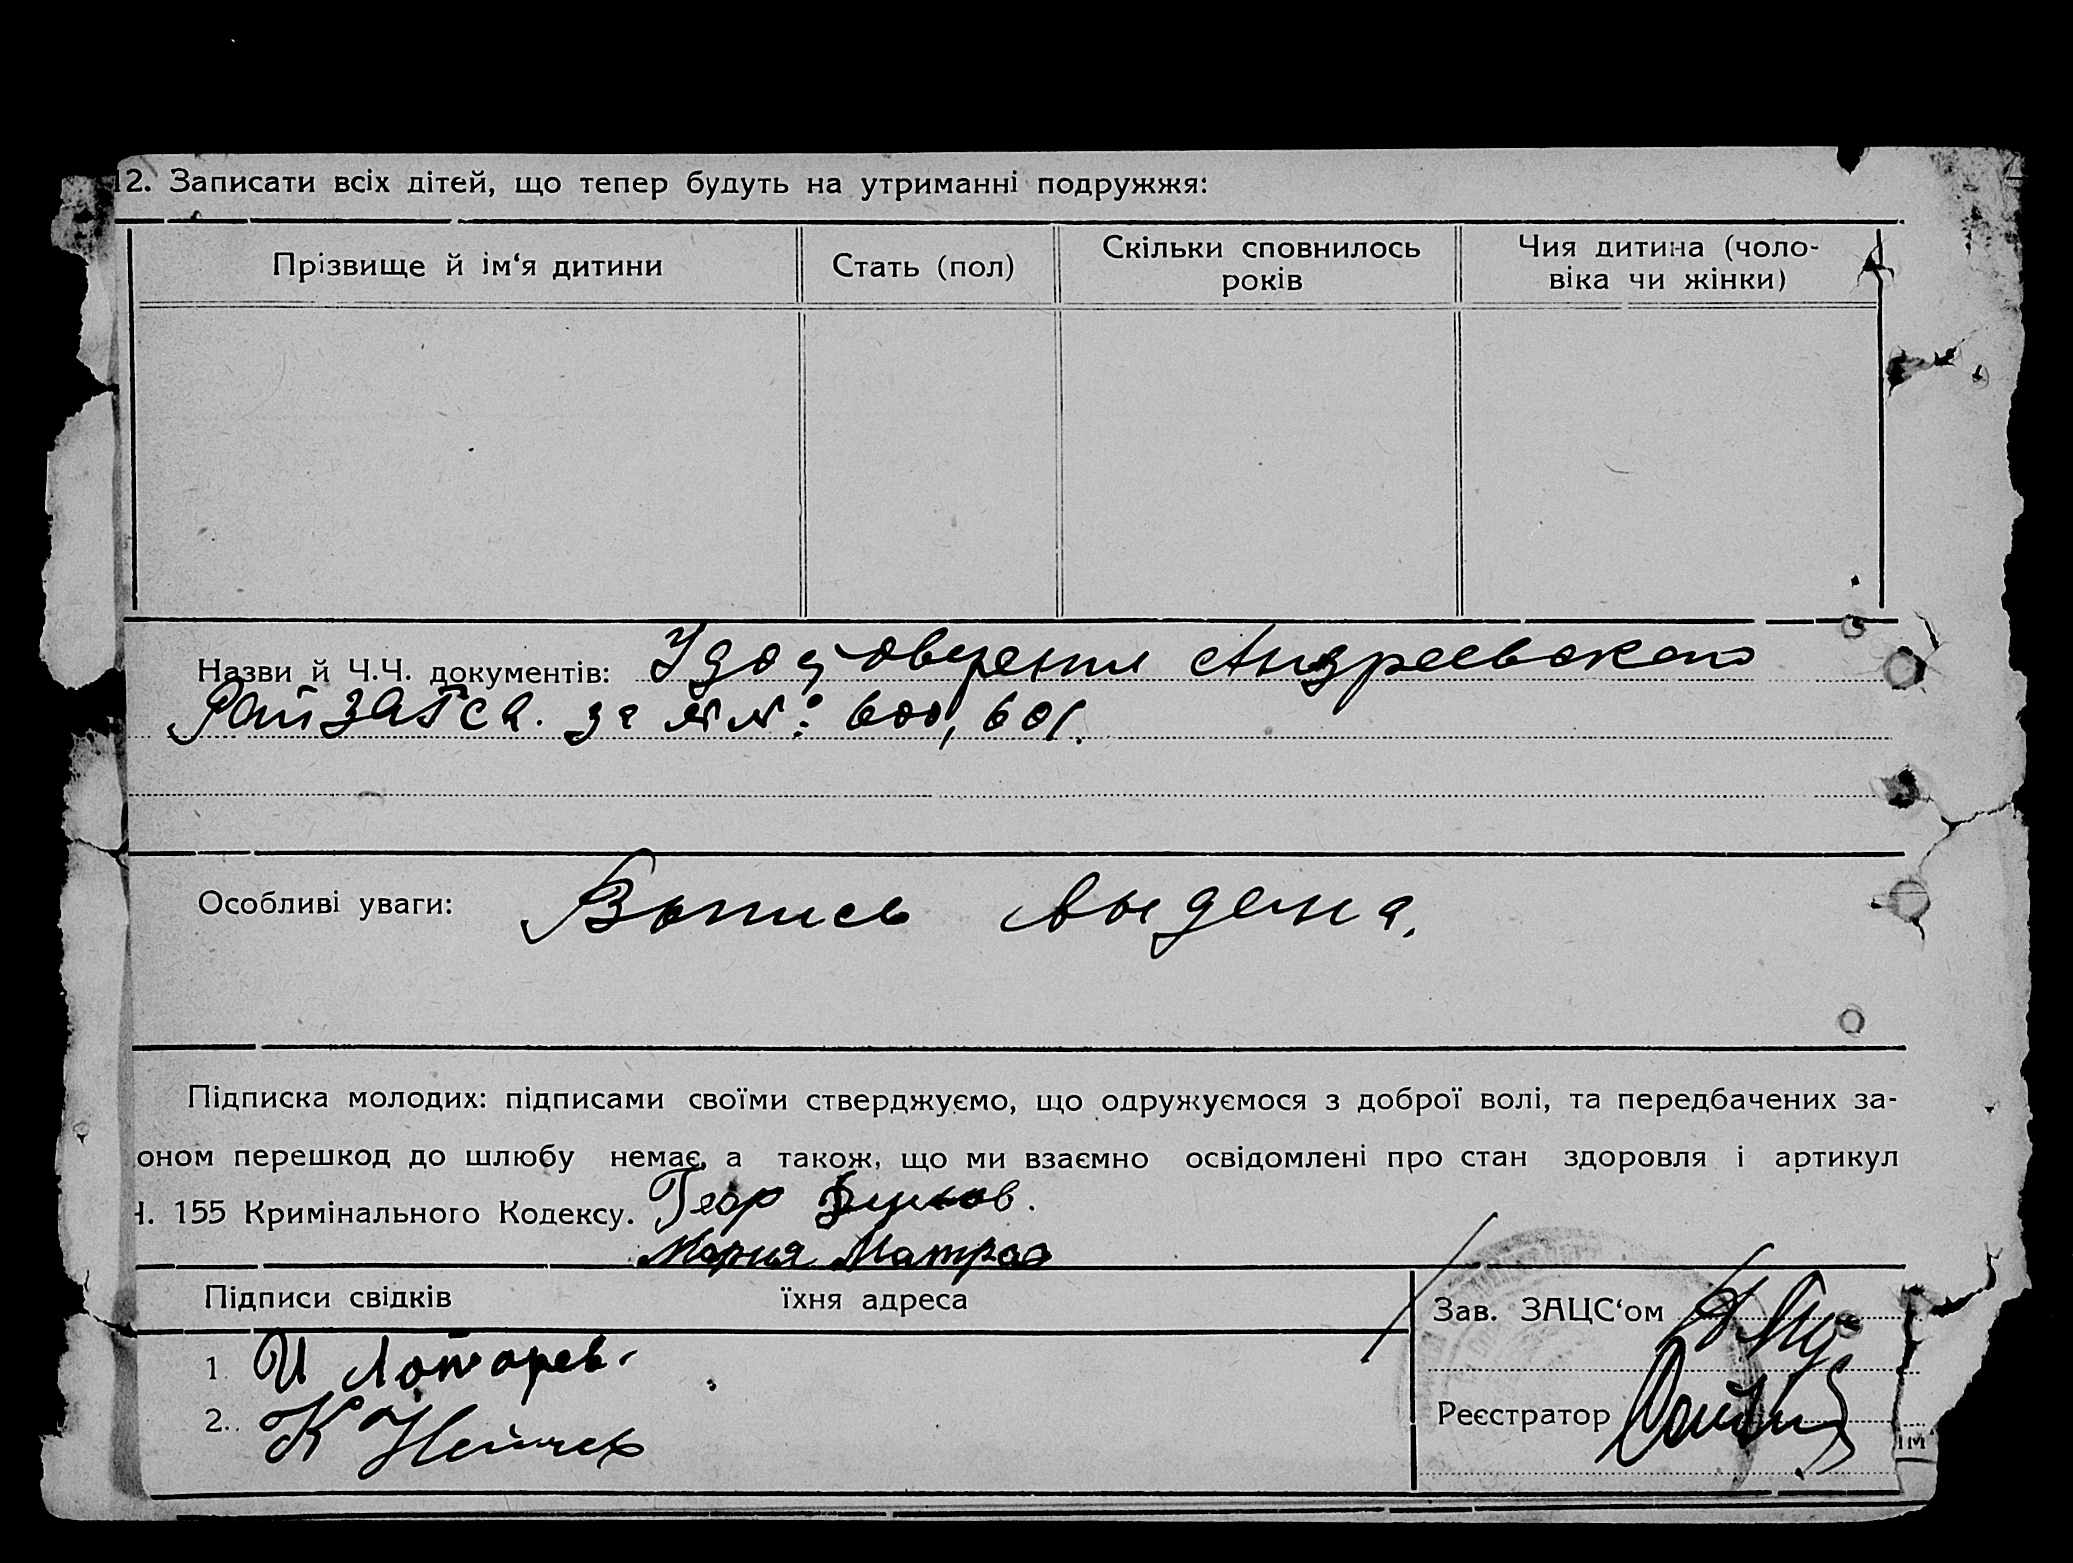 12. Записати всіх дітей, що тепер будуть на утриманні подружжя:
Прізвище й ім‘я дитини
Стать (пол)
Скільки сповнилось
років
Чия дитина (чоло-
віка чи жінки)
Назви й Ч.Ч. документів: Удостоверения Андреевского
РайЗАГСа. за №№: 600, 601.
Особливі уваги: Выпись выдана.
Підписка молодих: підписами своїми стверджуємо, що одружуємося з доброї волі, та передбачених за-
оном перешкод до шлюбу немає, а також, що ми взаємно освідомлені про стан здоровля і артикул
Ч. 155 Кримінального Кодексу. Геор
Мария
Підписи свідків
їхня адреса
Зав. ЗАЦС‘ом
1. И Лотарев.
2. К
Реєстратор